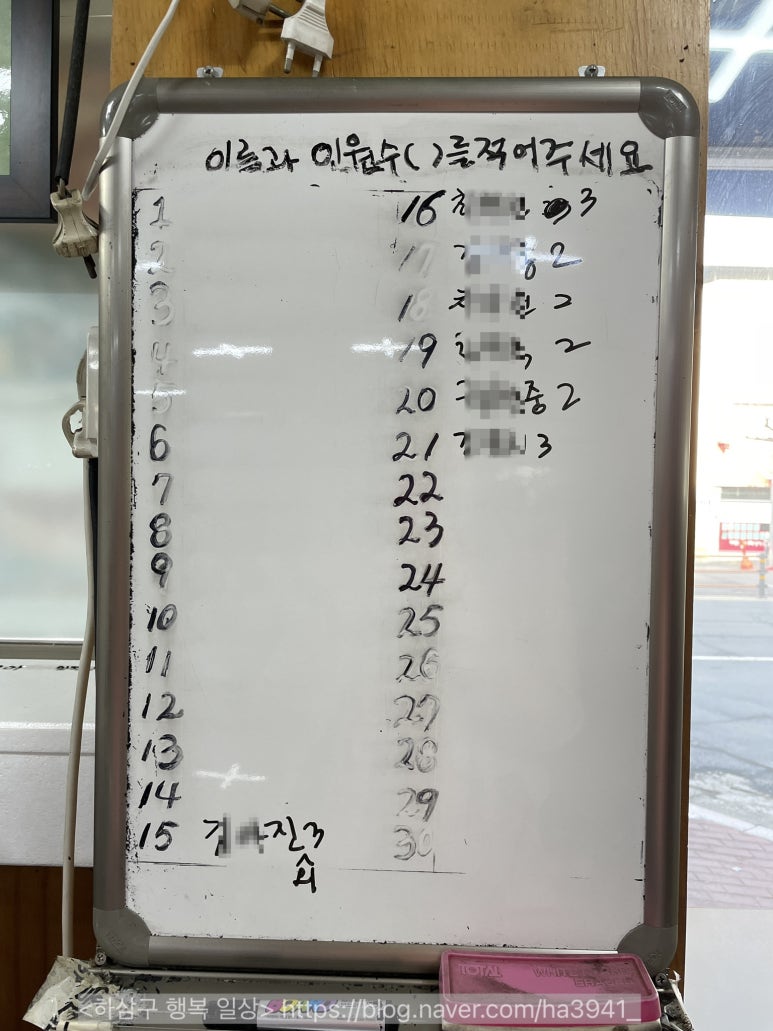 이름과 인원수( )를적어주세요
1
2
3
4
5
6
7
8
9
10
11
12
13
14
15 김 진 3
쇠
16 3
17 2
18 2
19 2
20 구 중 2
21 3
22
23
24
25
26
27
28
29
30
TOTAL
<하삼구 행복 일상> https://blog.naver.com/ha3941_